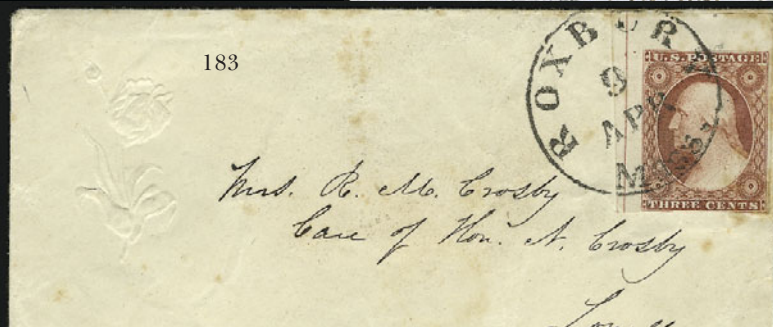 183
ROXBURY
9
APR
MASS.
U.S. POSTAGE
THREE CENTS
Mrs. R. M. Crosby
Care of Hon. N. Crosby